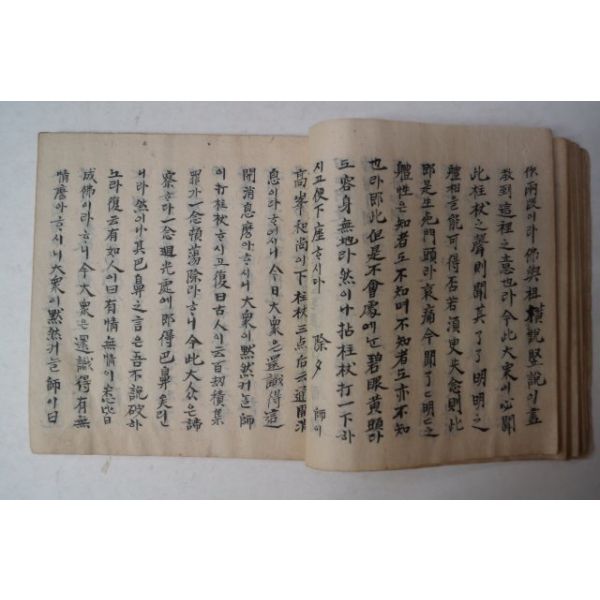 作兩段이라 佛與祖橫說竪說이 盡
敎到這裡之意也라 今此大衆이 必聞
此柱杖之聲則聞其了了明明之
體相을 能可得否若須臾失念則此
即是生死門頭라 哀痛今聞了了明明之
體性은 知者도 不知며 不知者도 亦不知
也라 即此但是不會處에난 碧眼黃頭라
도 容身無地라 然이나 拈柱杖打一下하
시고 便下座하시다 除夕 師이
高峯和尚이 下柱杖三点后云這箇消
息이라하여시니 今日大衆은 還識得這
箇消息麽아하시니 大衆이 黙然커늘 師
이 打柱杖하시고 復曰古人이 云百劫積集
罪가 一念頓蕩除라하니 今此大衆은 諦
察하라 一念廻光處에 即得巴鼻矣리
니라 然이나 其巴鼻之言은 吾不說破하
노라 復云有如人이 曰有情無情이 悉皆
成佛이라하니 今大衆은 還識得有無
情麽아하시니 大衆이 黙然커늘 師이 曰